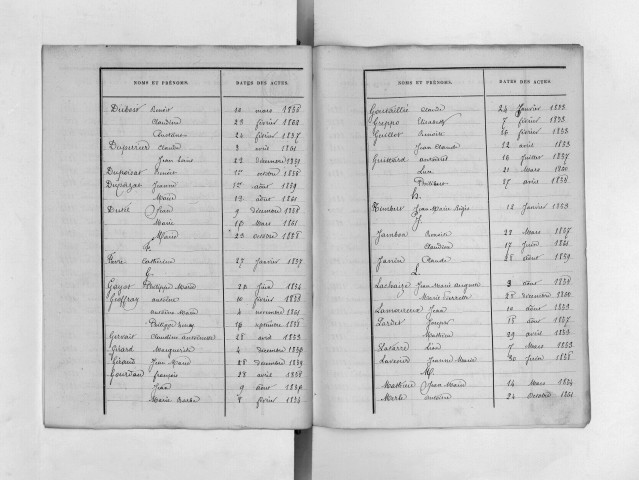 NOMS ET PRÉNOMS. DATES DES ACTES.
Dubost Benoit 10 mars 1858
Claudine 23 février 1862
24 février 1857
Duperrier Claude 3 avril 1861
Jean Louis 23 Décembre 1859
Benoit 1er octobre 1858
Jeanne 1er août 1859
Marie 12 août 1861
Jean 9 décembre 1858
Marie 16 Mars 1861
Marie 23 octobre 1858
F.
Favre Catherine 27 Janvier 1854
G.
Gayot Philippe Marie 20 Juin 1854
Geoffray Antoine 10 février 1858
Antoine Marie 4 novembre 1861
Philippe 16 septembre 1858
Gervais Claudine Antoinette 28 avril 1853
Girard Marguerite 4 Décembre 1856
Giraud Jean Marie 28 Décembre 1859
Gourdan François 28 avril 1858
Jean 9 août 1856
Marie 8 février 1854
NOMS ET PRÉNOMS. DATES DES ACTES.
Claude 24 Janvier 1853
Greppo 7 février 1853
Guillot Benoite 26 février 1853
Jean Claude 12 avril 1853
Guittard 16 Juillet 1857
21 Mars 1860
Philibert 17 avril 1854
H.
Humbert Jean Marie 12 Janvier 1853
J.
Jambon 22 Mars 1857
Claudine 17 Juin 1861
Claude 28 août 1859
L.
Lachaize Jean Marie Auguste 3 août 1858
Marie Pierrette 28 décembre 1860
Jean 10 août 1859
Lardet Joseph 18 août 1857
Mathieu 29 avril 1853
7 Mars 1853
Jeanne Marie 30 Juin 1858
M.
Mathieu Jean Marie 14 Mars 1854
Merle Antoine 24 Octobre 1861